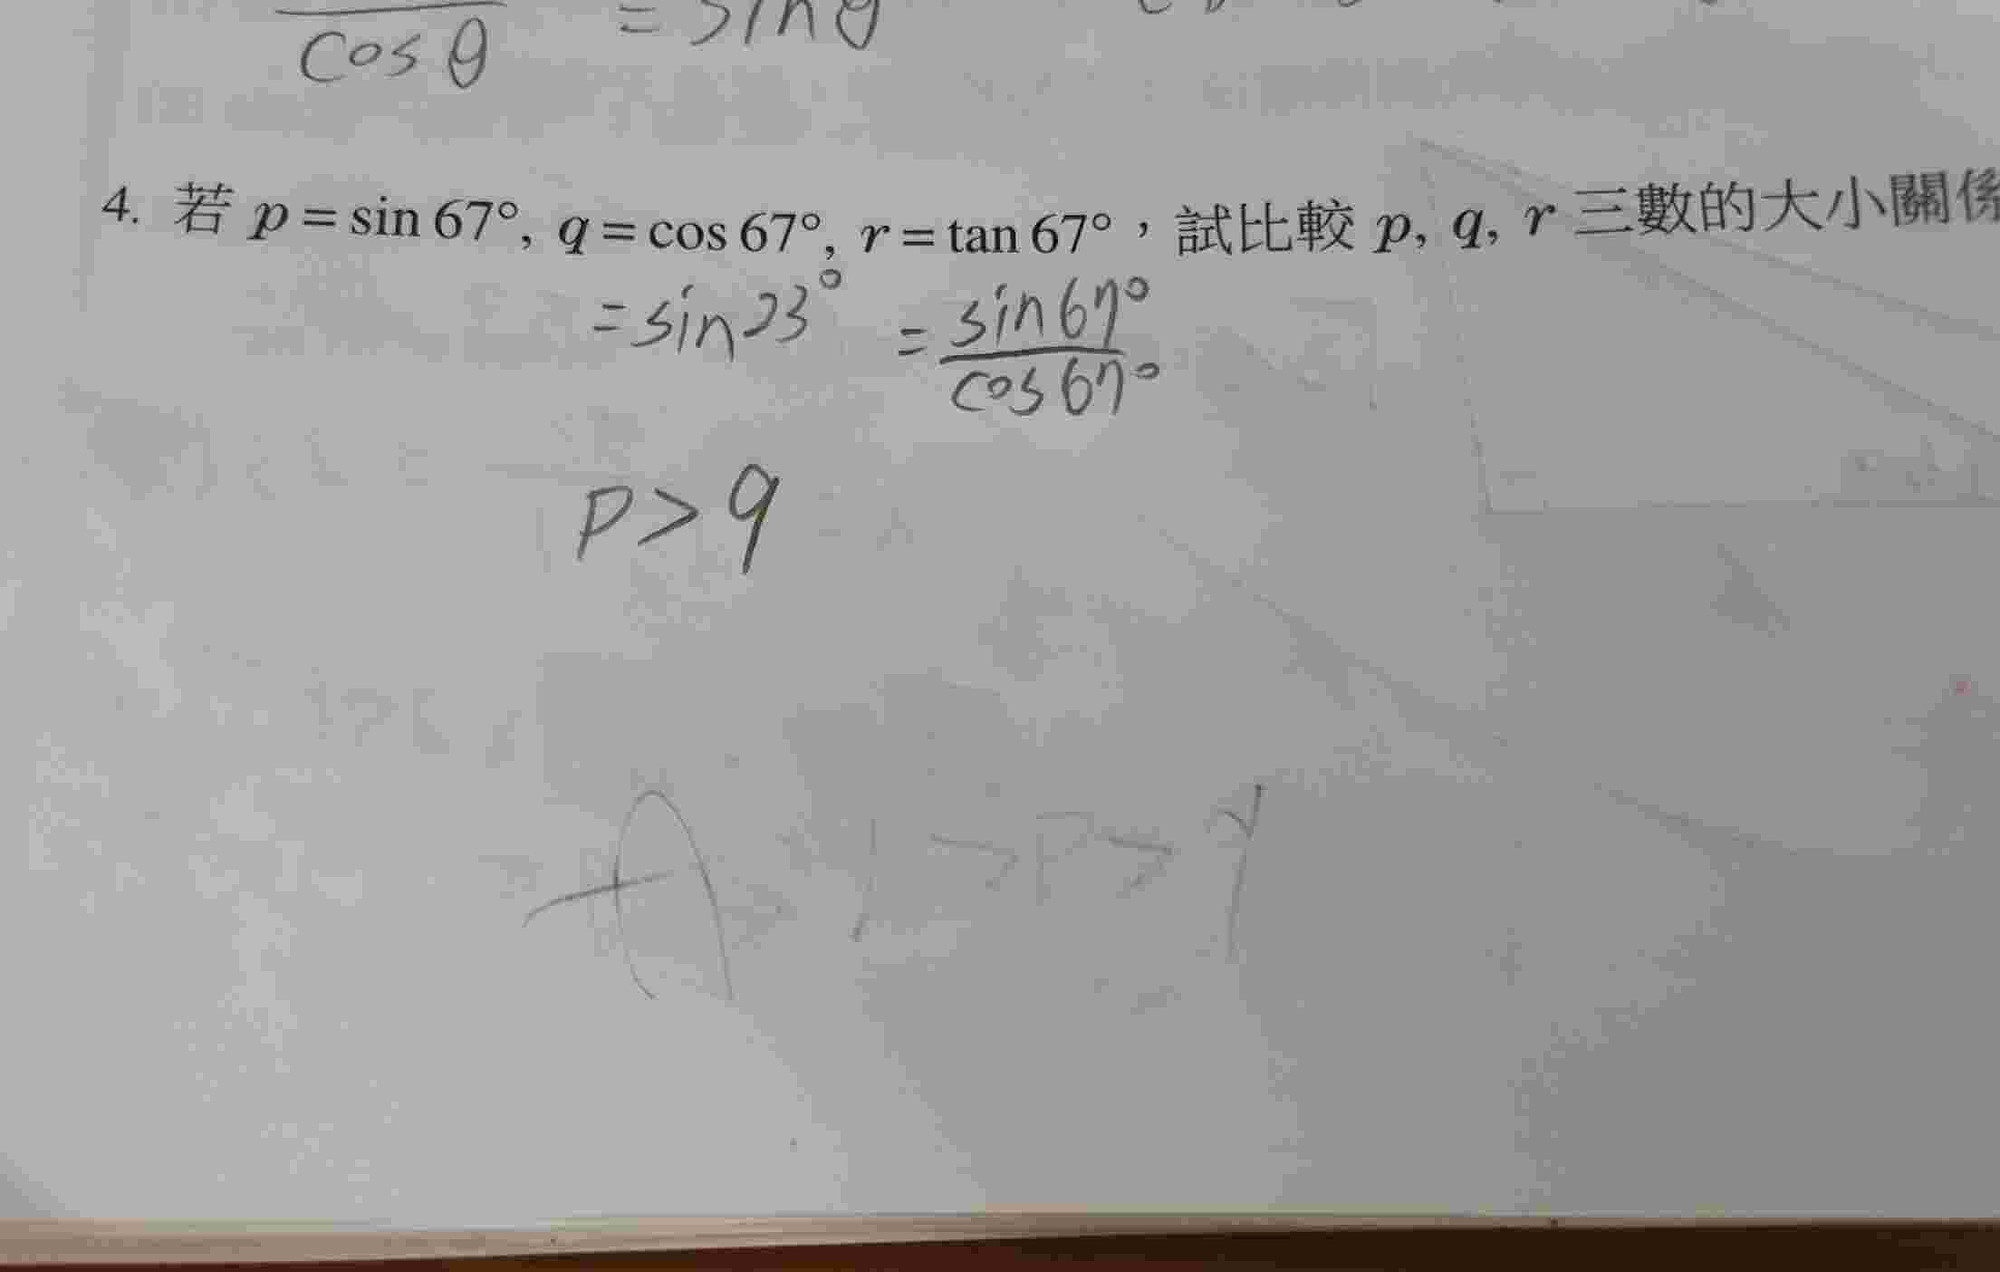 cos θ = sin θ
4. 若 p = sin 67°, q = cos 67°, r = tan 67°，試比較 p, q, r 三數的大小關係
= sin 23° = sin 67°
cos 67°
p > q
> P >